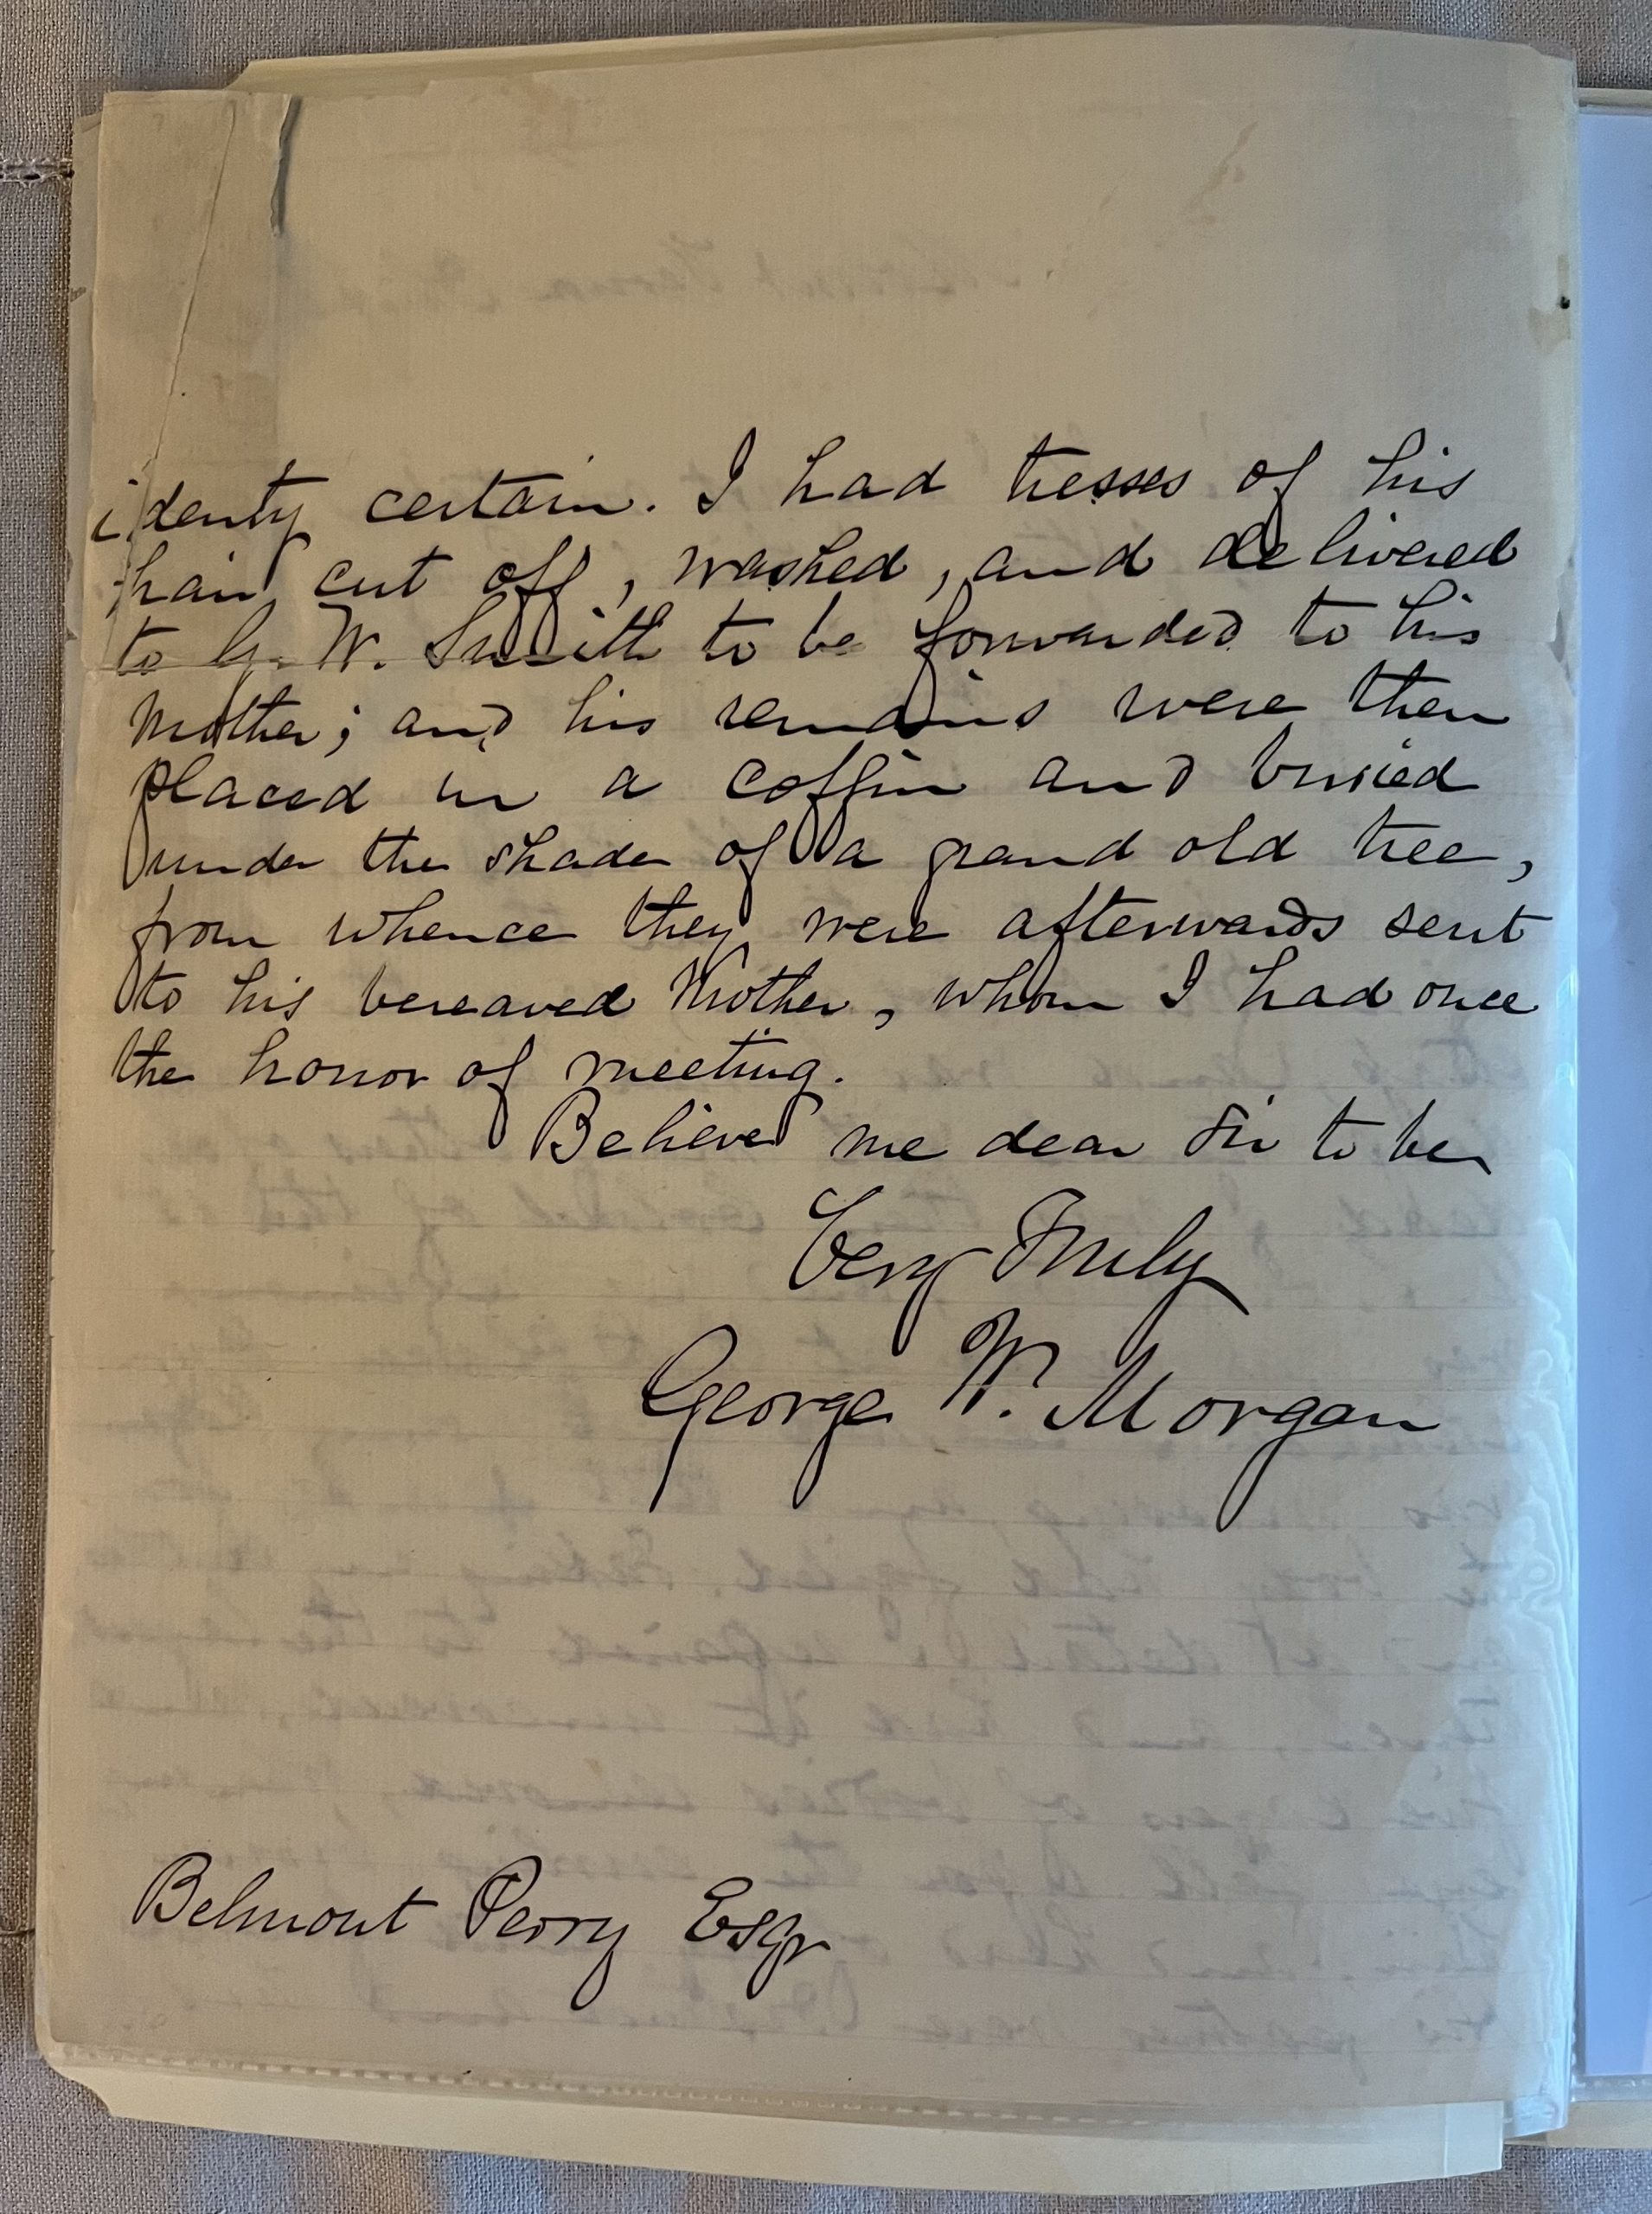 identy certain. I had tresses of his
hair cut off, washed, and delivered
to G. W. Smith to be forwarded to his
Mother; and his remains were then
placed in a coffin and buried
under the shade of a grand old tree,
from whence they were afterwards sent
to his bereaved Mother, whom I had once
the honor of meeting.
Believe me dear Sir to be
Very Truly
George W. Morgan
Belmont Perry Esqr